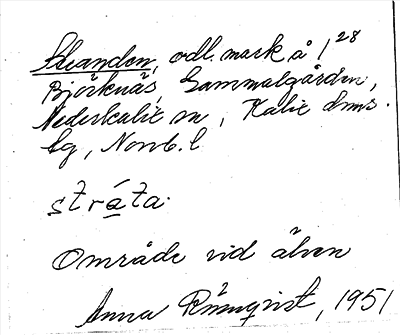 Stranden, odl. mark å 1²⁸
Björknäs, Gammalgården,
Nederkalix sn, Kalix dms.
lg, Norrb. l
stráta.
Område vid älven
Anna Rönnqvist, 1951